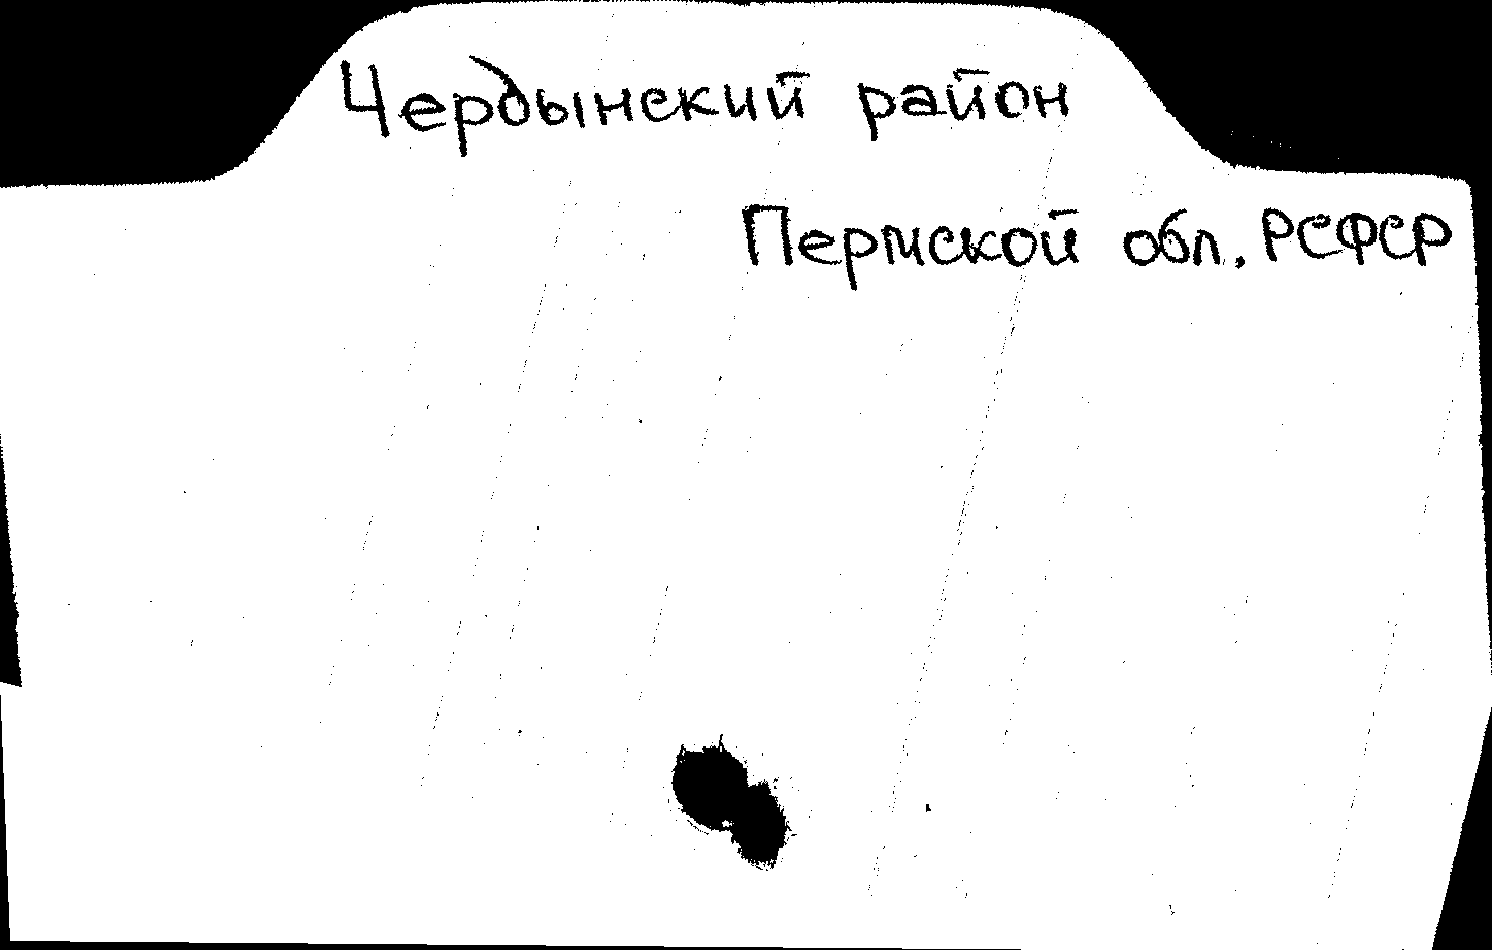 Чердынский район
Пермской обл. РСФСР